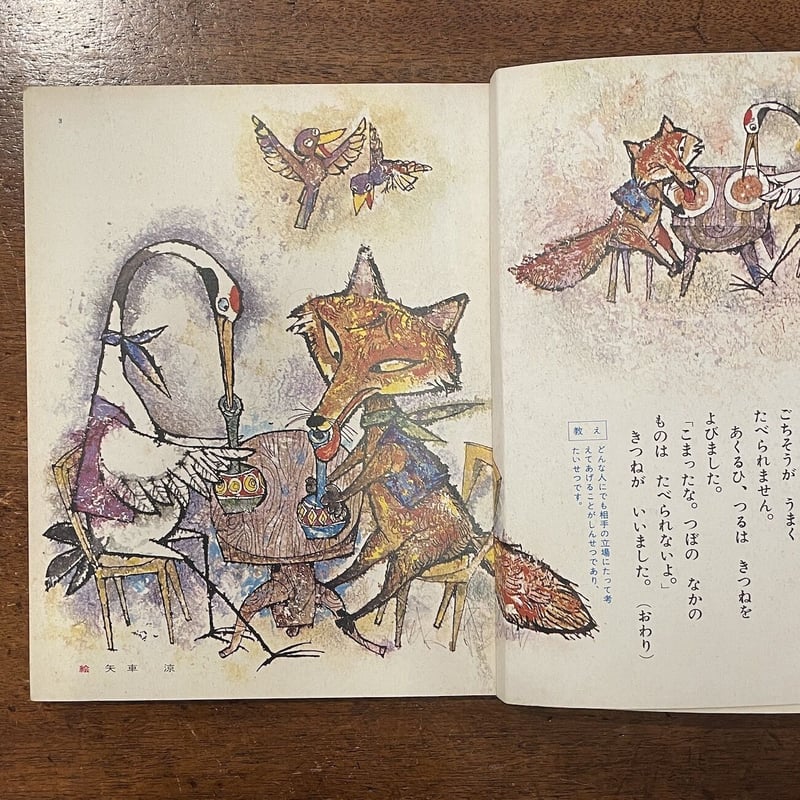 3
絵 矢車 涼
ごちそうが うまく
たべられません。
あくるひ、つるは きつねを
よびました。
「こまったな。つぼの なかの
ものは たべられないよ。」
きつねが いいました。（おわり）
教え
どんな人にでも相手の立場にたって考
えてあげることがしんせつであり、
たいせつです。